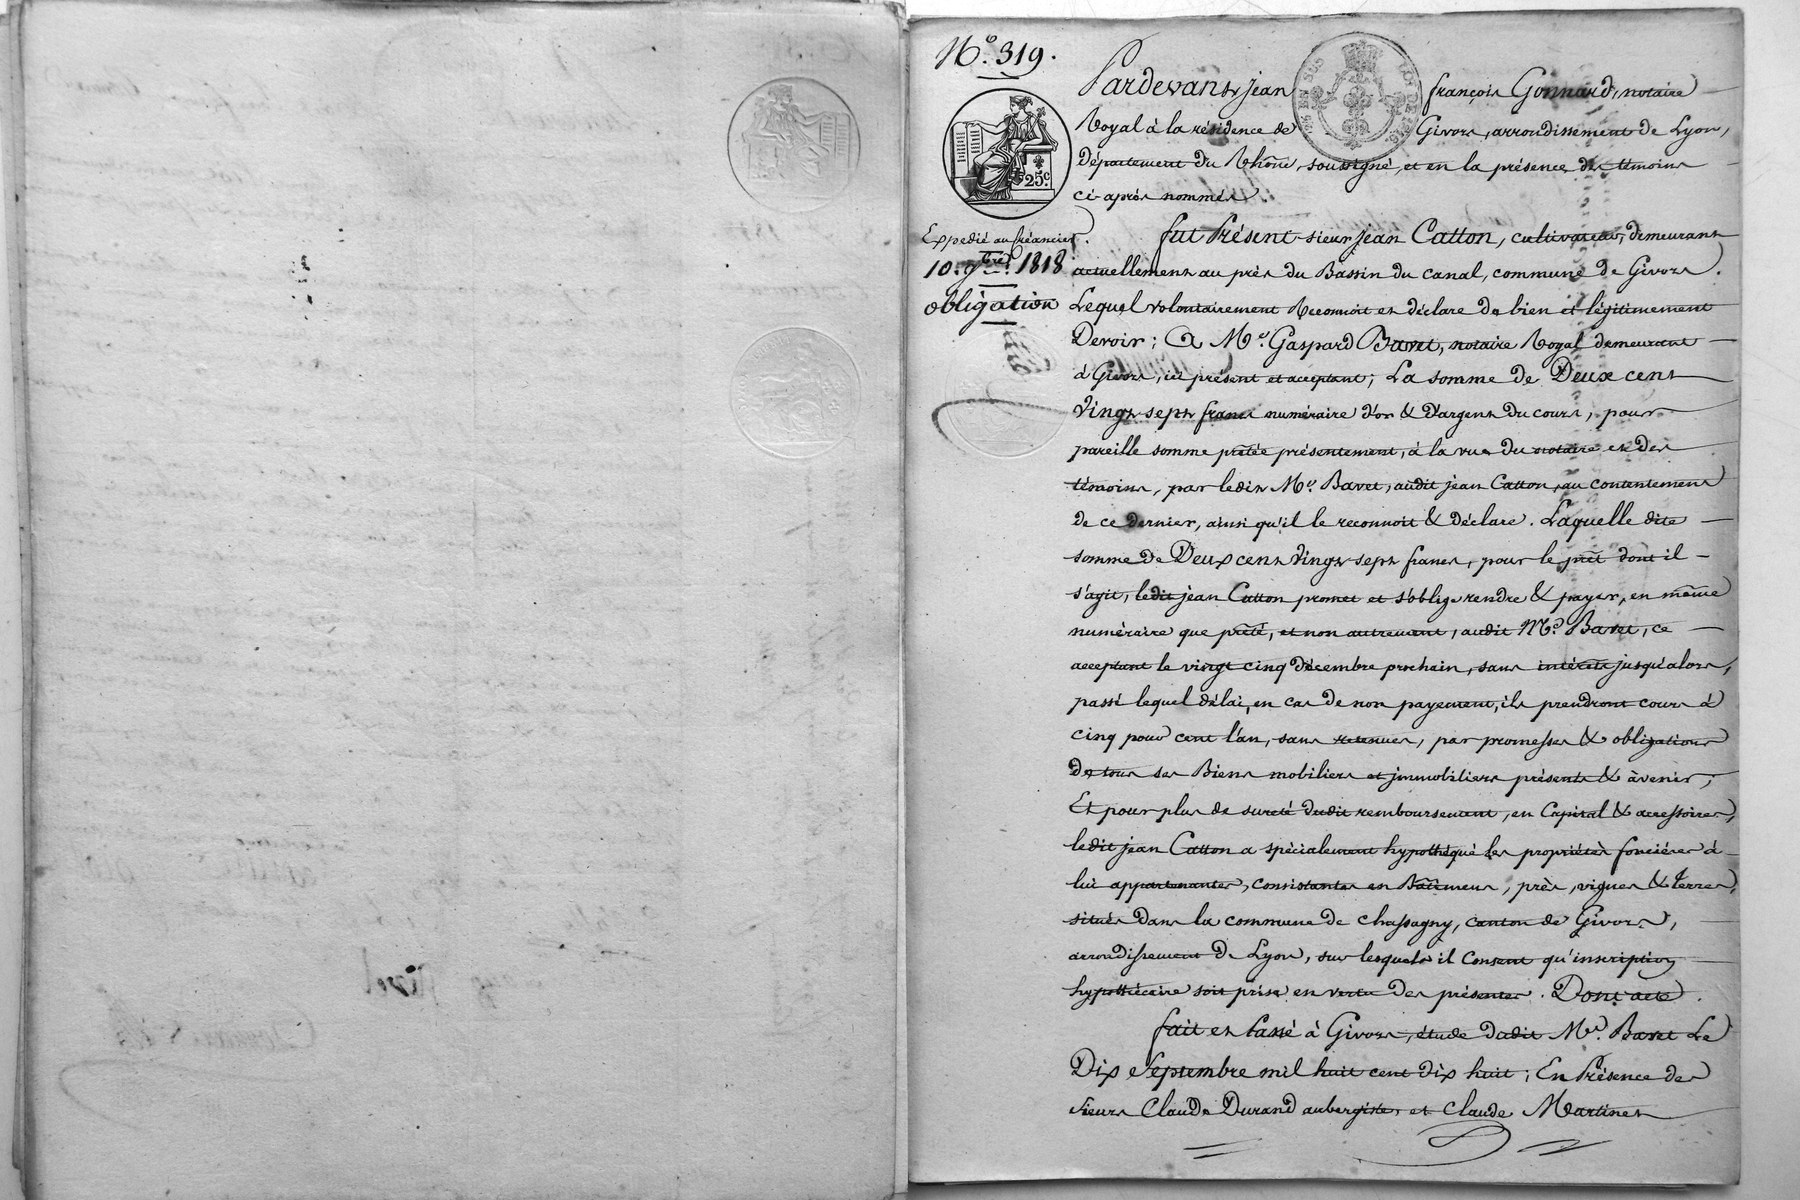 N.º 319.
Pardevant jean françois Gonnard, notaire
Royal à la résidence de Givors, arrondissement de Lyon,
Département du Rhône, soussigné, et en la présence des témoins
ci-après nommés.
25.c
Expedié au Créancier.
10. 9bre 1818
obligation
fut Présent sieur jean Catton, cultivateur, demeurant
actuellement au près du Bassin du canal, commune de Givors.
Lequel volontairement Reconnoit et déclare de bien et légitimement
Devoir; A Me. Gaspard Bavet, notaire Royal demeurant
à Givors, ici présent et acceptant; La somme de Deux cent
vingt sept francs numéraire d'or & d'argent du cours, pour
pareille somme prêtée présentement, à la vue du notaire et des
témoins, par ledit Me. Bavet, audit jean Catton, au contentement
de ce dernier, ainsi qu'il le reconnoit & déclare. Laquelle dite
somme de Deux cent vingt sept francs, pour le prêt dont il
s'agit, ledit jean Catton promet et s'oblige rendre & payer, en même
numéraire que prêté, et non autrement, audit Me. Bavet, ce
acceptant le vingt cinq décembre prochain, sans intérêts jusqu'alors,
passé lequel délai, en cas de non payement, ils prendront cours à
cinq pour cent l'an, sans retenues, par promesses & obligations
de tous ses Biens mobiliers et jmmobiliers présents & àvenir;
Et pour plus de sureté dudit remboursement, en Capital & accessoires,
ledit jean Catton a spécialement hypothéqué les propriétés foncières à
lui appartenantes, consistantes en Bâtimens, près, vignes & terres,
situés dans la commune de chassagny, canton de Givors,
arrondissement de Lyon, sur lesquels il Consent qu'inscription
hypothécaire soit prise en vertu des présentes. Dont acte.
fait et Passé à Givors, étude dudit Me. Bavet Le
Dix Septembre mil huit cent dix huit; En Présence des
sieurs Claude Durand aubergiste, et Claude Martinet